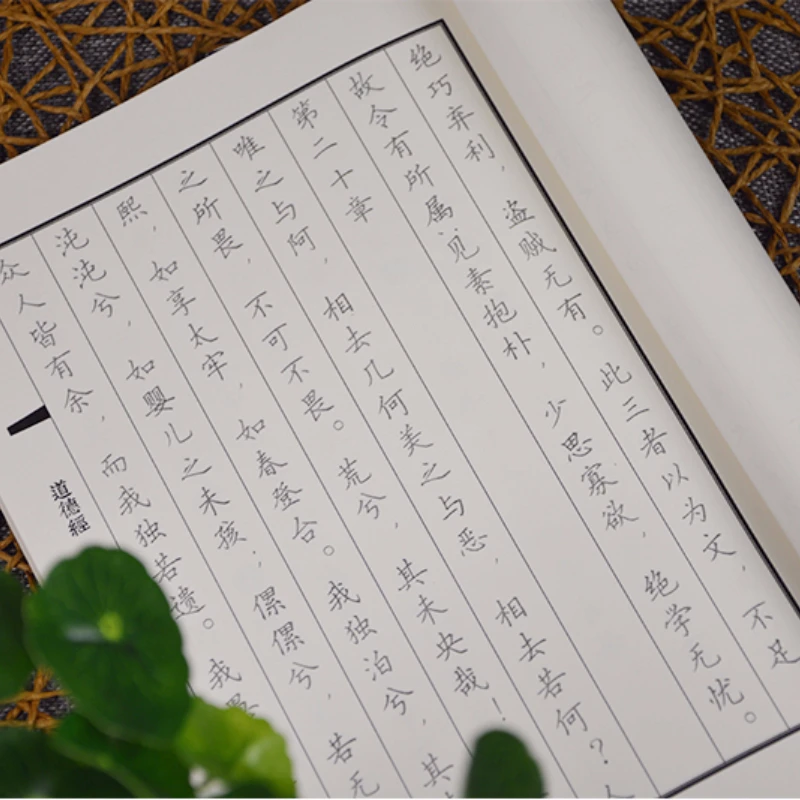 绝巧弃利，盗贼无有。此三者以为文，不足
故令有所属见素抱朴，少思寡欲，绝学无忧。
第二十章
唯之与阿，相去几何美之与恶，相去若何？人
之所畏，不可不畏。荒兮，其未央哉！
熙，如享太牢，如春登台。我独泊兮，其
沌沌兮，如婴儿之未孩，傫傫兮，若无
众人皆有余，而我独若遗。我
道德經